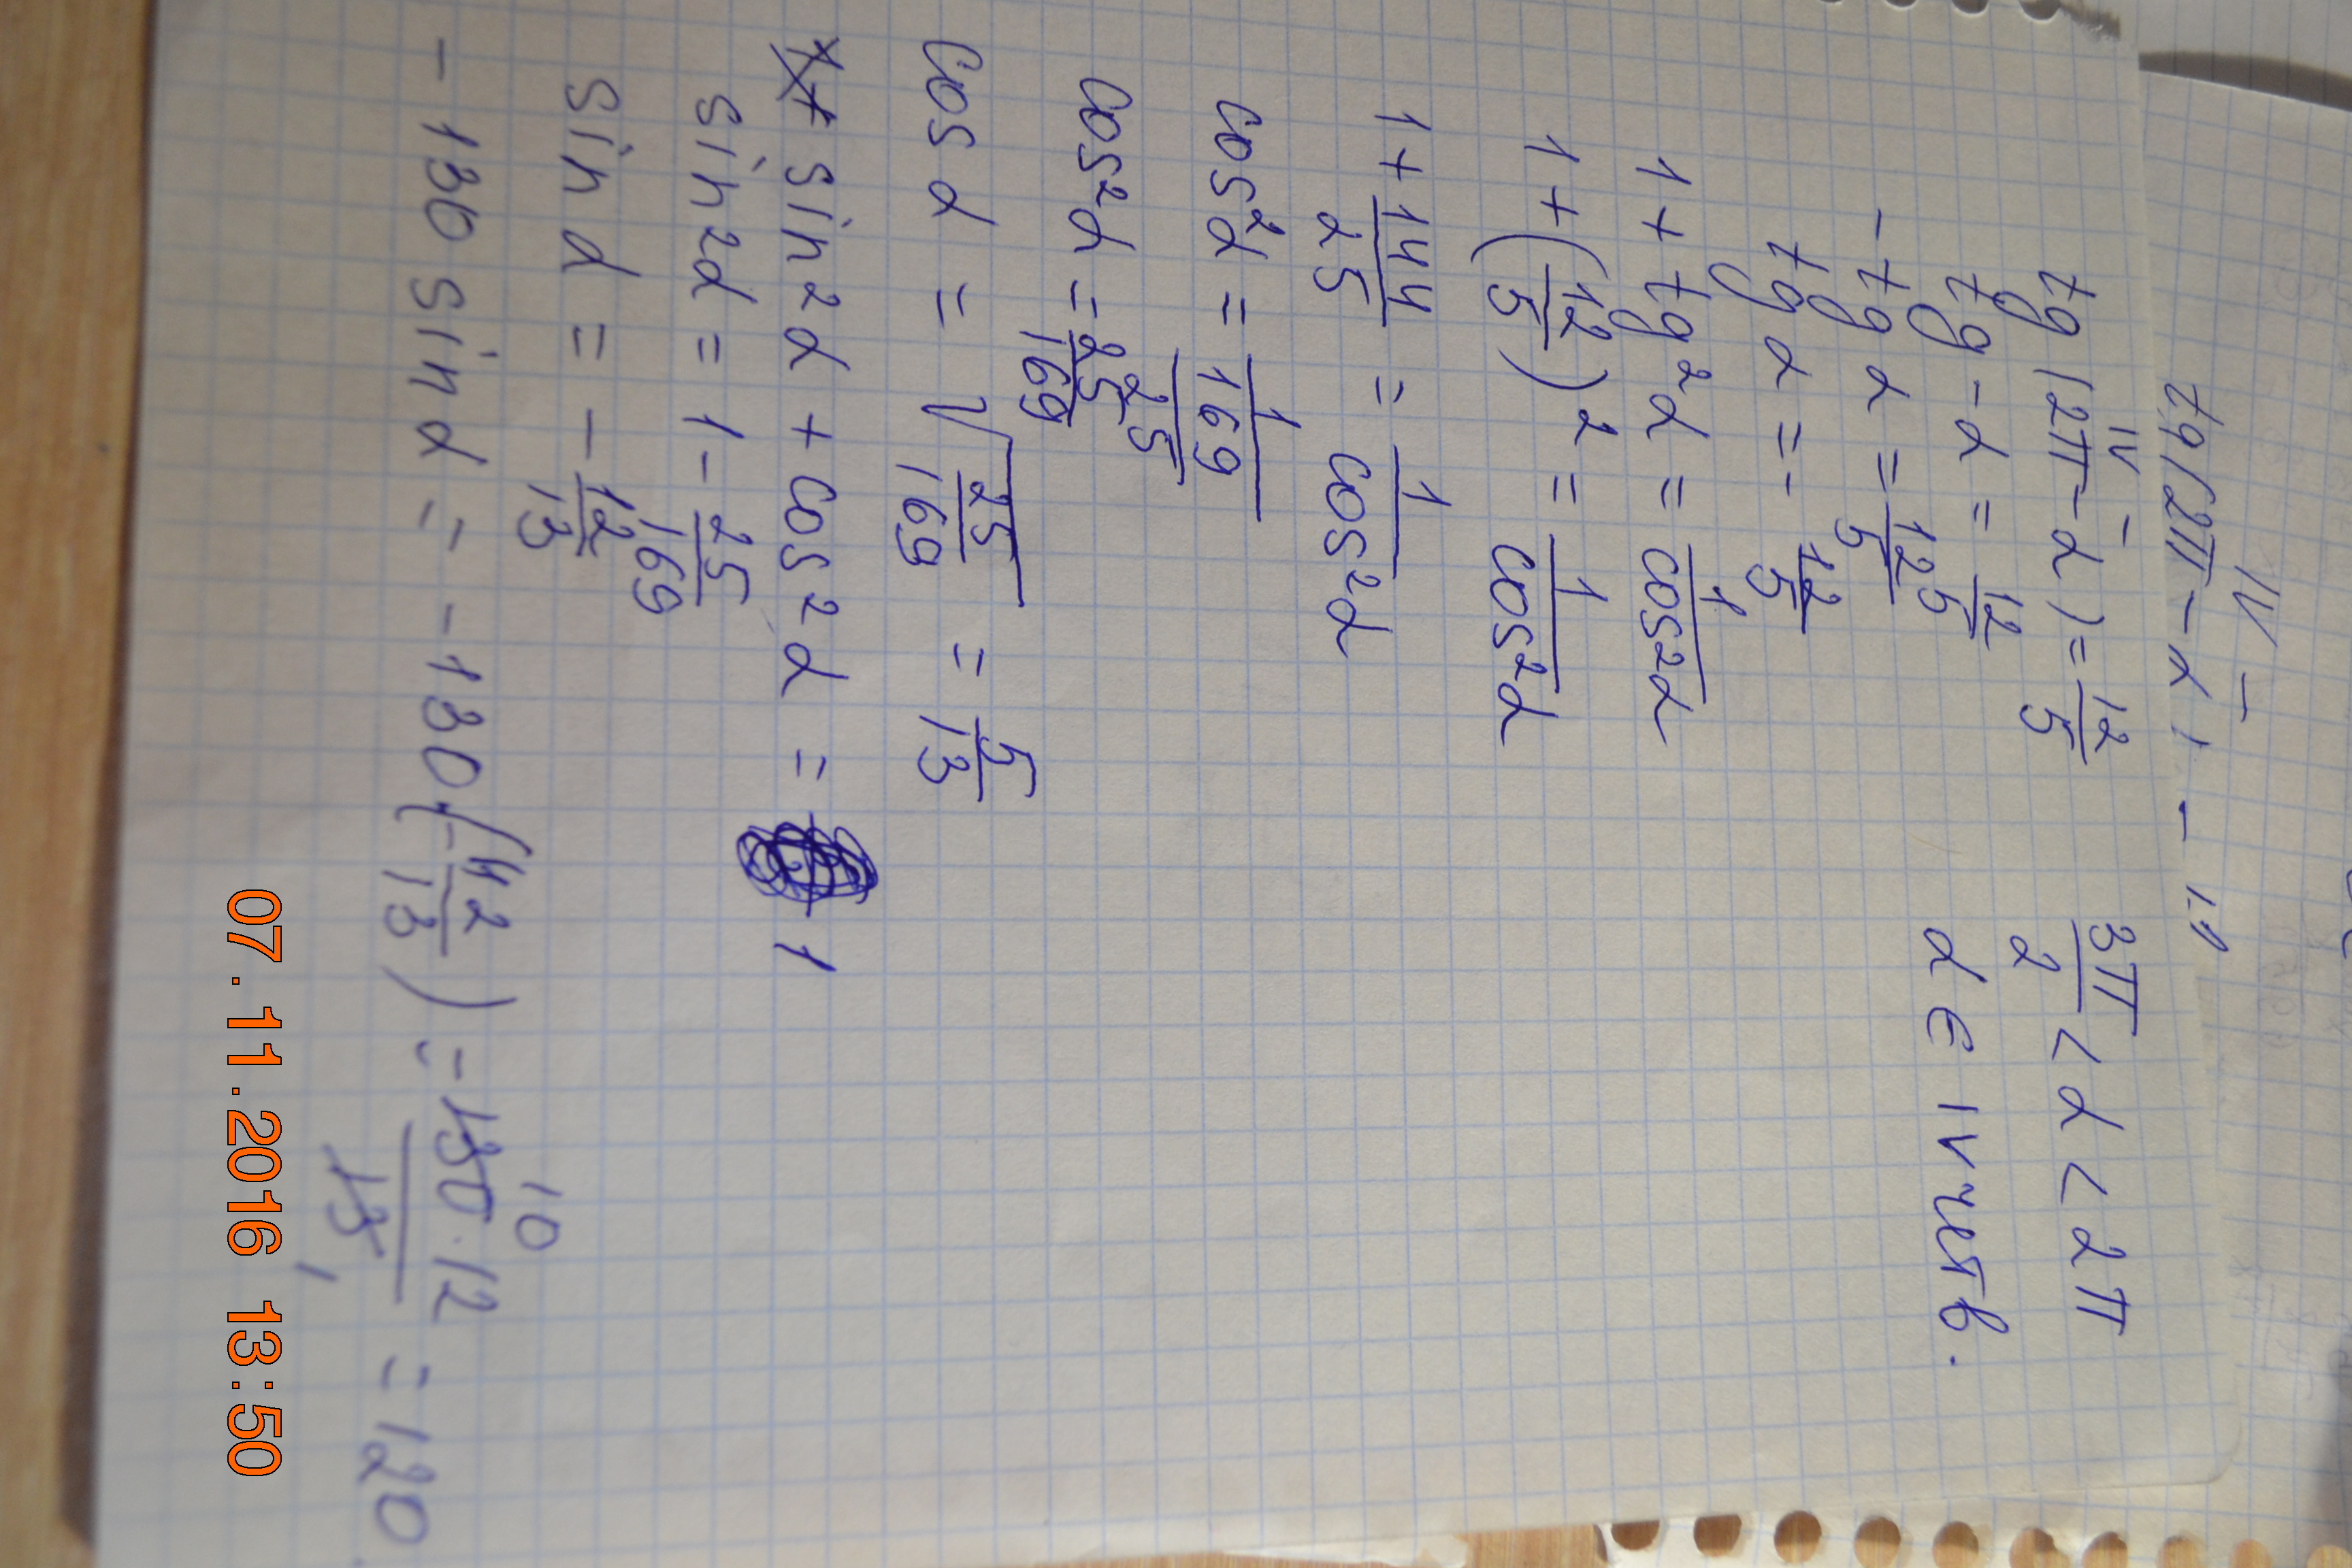 IV -
tg(2π - α) -
IV -
tg(2π - α) = 12/5    3π/2 < α < 2π
tg - α = 12/5    α ∈ IV четв.
- tg α = 12/5 5
tg α = - 12/5
1 + tg²α = 1/cos²α
1 + (12/5)² = 1/cos²α
1 + 144/25 = 1/cos²α
cos²α = 1/(169/25)
cos²α = 25/169
cos α = √(25/169) = 5/13
sin²α + cos²α = 1
sin²α = 1 - 25/169
sin α = - 12/13
- 130 sin α = - 130 (- 12/13) = - 130 · 12 / 13 = 120
10
1
07.11.2016 13:50